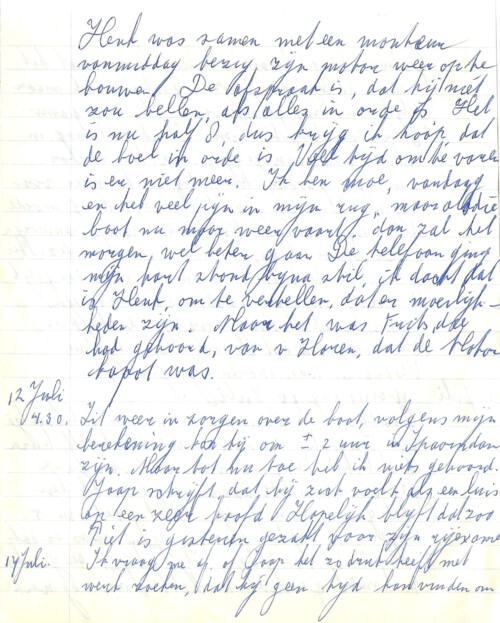 Henk was samen met een monteur
vanmiddag bezig zijn motor weer op te
bouwen. De afspraak is, dat hij niet
zou bellen, als alles in orde is. Het
is nu half 8, dus krijg ik hoop, dat
de boel in orde is. Veel tijd om te varen
is er niet meer. Ik ben moe, vandaag
en heb veel pijn in mijn rug, maar als die
boot nu maar weer vaart, dan zal het
morgen wel beter gaan. De telefoon ging
mijn hart stond byna stil, ik dacht dat
is Henk, om te vertellen, dat er moeilyk-
heden zijn. Maar het was Frits, die
had gehoord, van v Horen, dat de Motor
kapot was.
12 Juli
4.30. Zit weer in zorgen over de boot, volgens mijn
berekening kan hij om ± 2 uur in Spaarndam
zijn. Maar tot nu toe heb ik niets gehoord.
Jaap schrijft, dat hij zich voelt als een luis
op een zeer hoofd. Hopelijk blyft dat zoo
Piet is gisteren gezakt voor zijn rijexamen
14 Juli. Ik vraag me af of Jaap het zo druk heeft met
werk zoeken, dat hij geen tijd kan vinden om